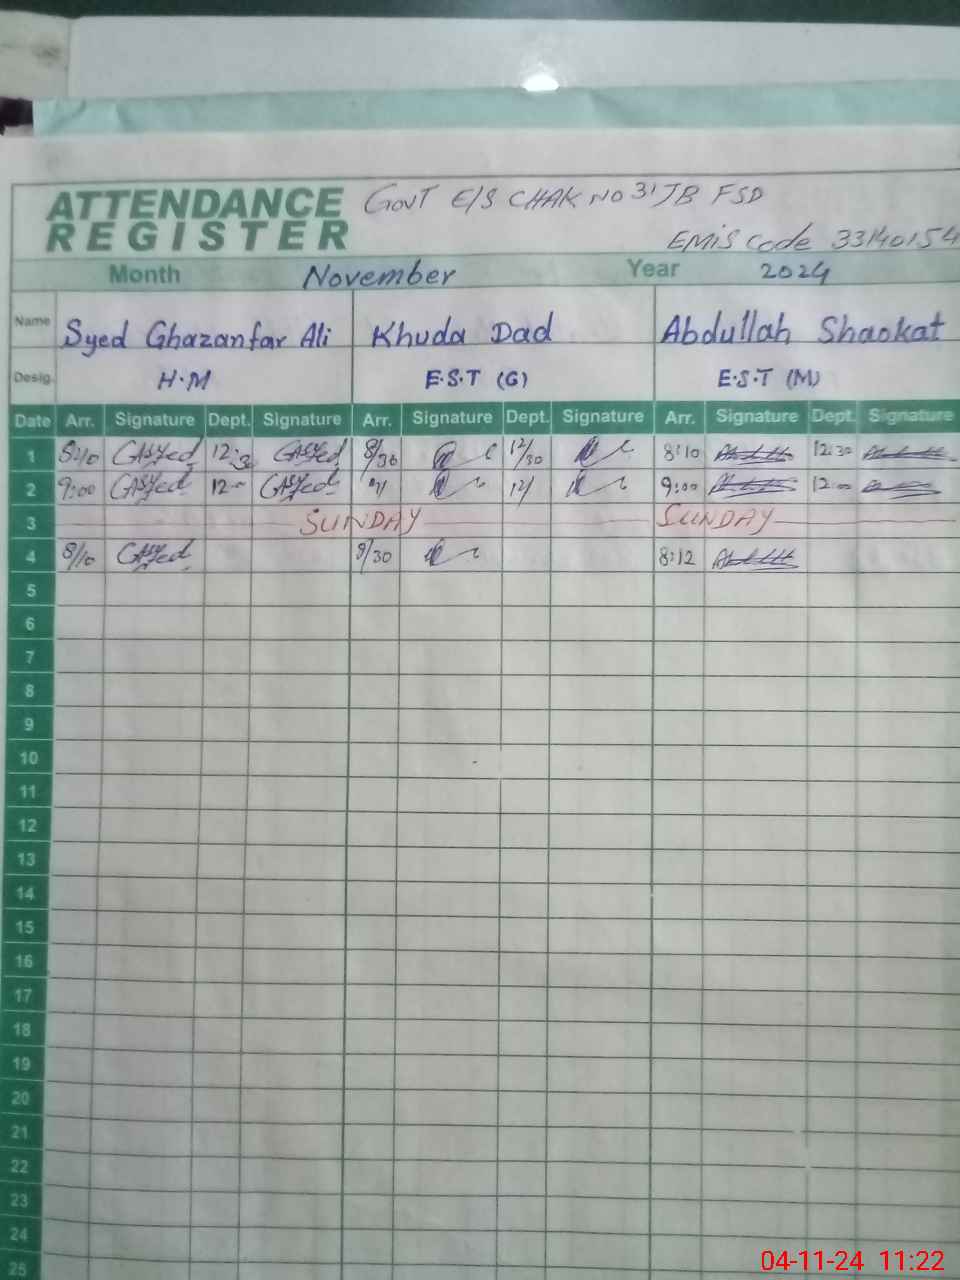 ATTENDANCE REGISTER
GOVT E/S CHAK NO 31 JB FSD
EMIS Code 33140154
Month November Year 2024
Name Syed Ghazanfar Ali Khuda Dad Abdullah Shaokat
Desig. H.M E.S.T (G) E.S.T (M)
Date Arr. Signature Dept. Signature Arr. Signature Dept. Signature Arr. Signature Dept. Signature
1 12:30 8/30 12/30 8:10 12:30
2 9:00 12- 12/ 9:00 12-
3 SUNDAY SUNDAY
4 8/10 8/30 8:12
5
6
7
8
9
10
11
12
13
14
15
16
17
18
19
20
21
22
23
24
25
04-11-24 11:22